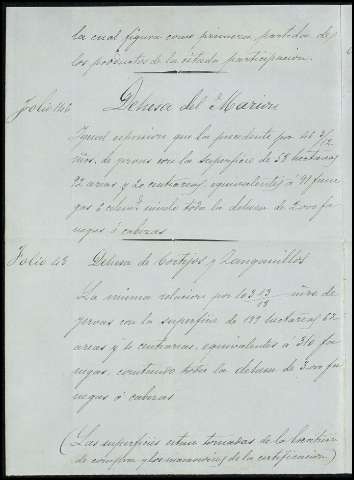 la cual figura como primera partida de
los productos de la citada participacion.
Folio 46
Dehesa del
Igual espresion que la precedente por 46 2/12
mrs. de yervas con la superficie de 58 hectareas
22 areas y 20 centiareas, equivalentes á 91 fane
gas 6 siendo toda la dehesa de 2.000 fa
negas ó cabezas
Folio 48 Dehesa de Cortijos y Zanganillos
La misma relacion por 103 13/18 mrs. de
yervas con la superficie de 199 hectareas 62
areas y 10 centiareas, equivalentes á 310 fa
negas, teniendo toda la dehesa de 3.000 fa
negas ó cabezas
(Las superficies estan tomadas de la
de compra y los maravedises de la certificacion)